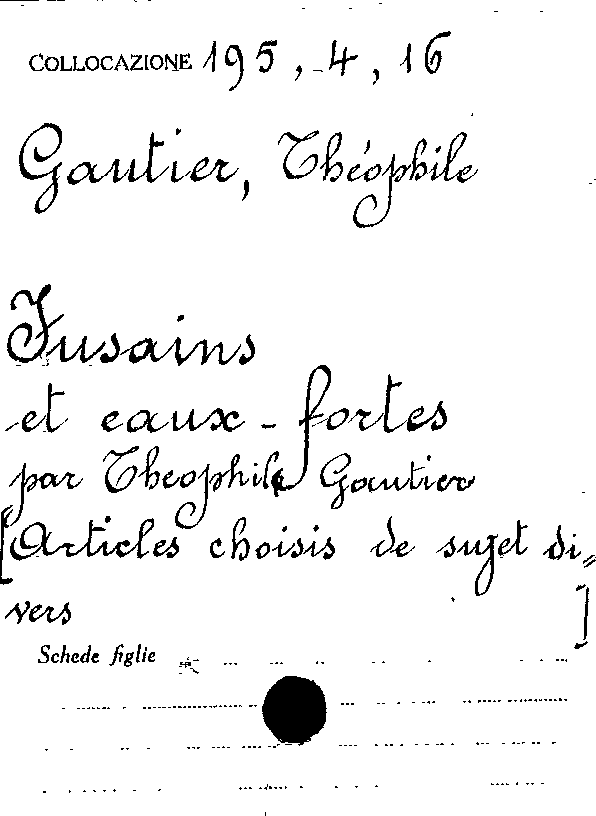 COLLOCAZIONE 195, -4, 16
Gautier, Théophile
Fusains
et eaux-fortes
par Theophile Gautier
[Articles choisis de sujet di=
vers ]
Schede figlie